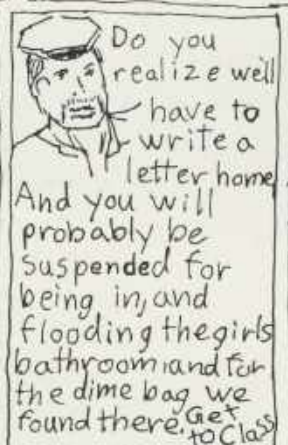 Do you
realize well
have to
write a
letter home
And you will
probably be
suspended for
being in, and
flooding the girls
bathroom, and for
the dime bag we
found there. Get
to Class